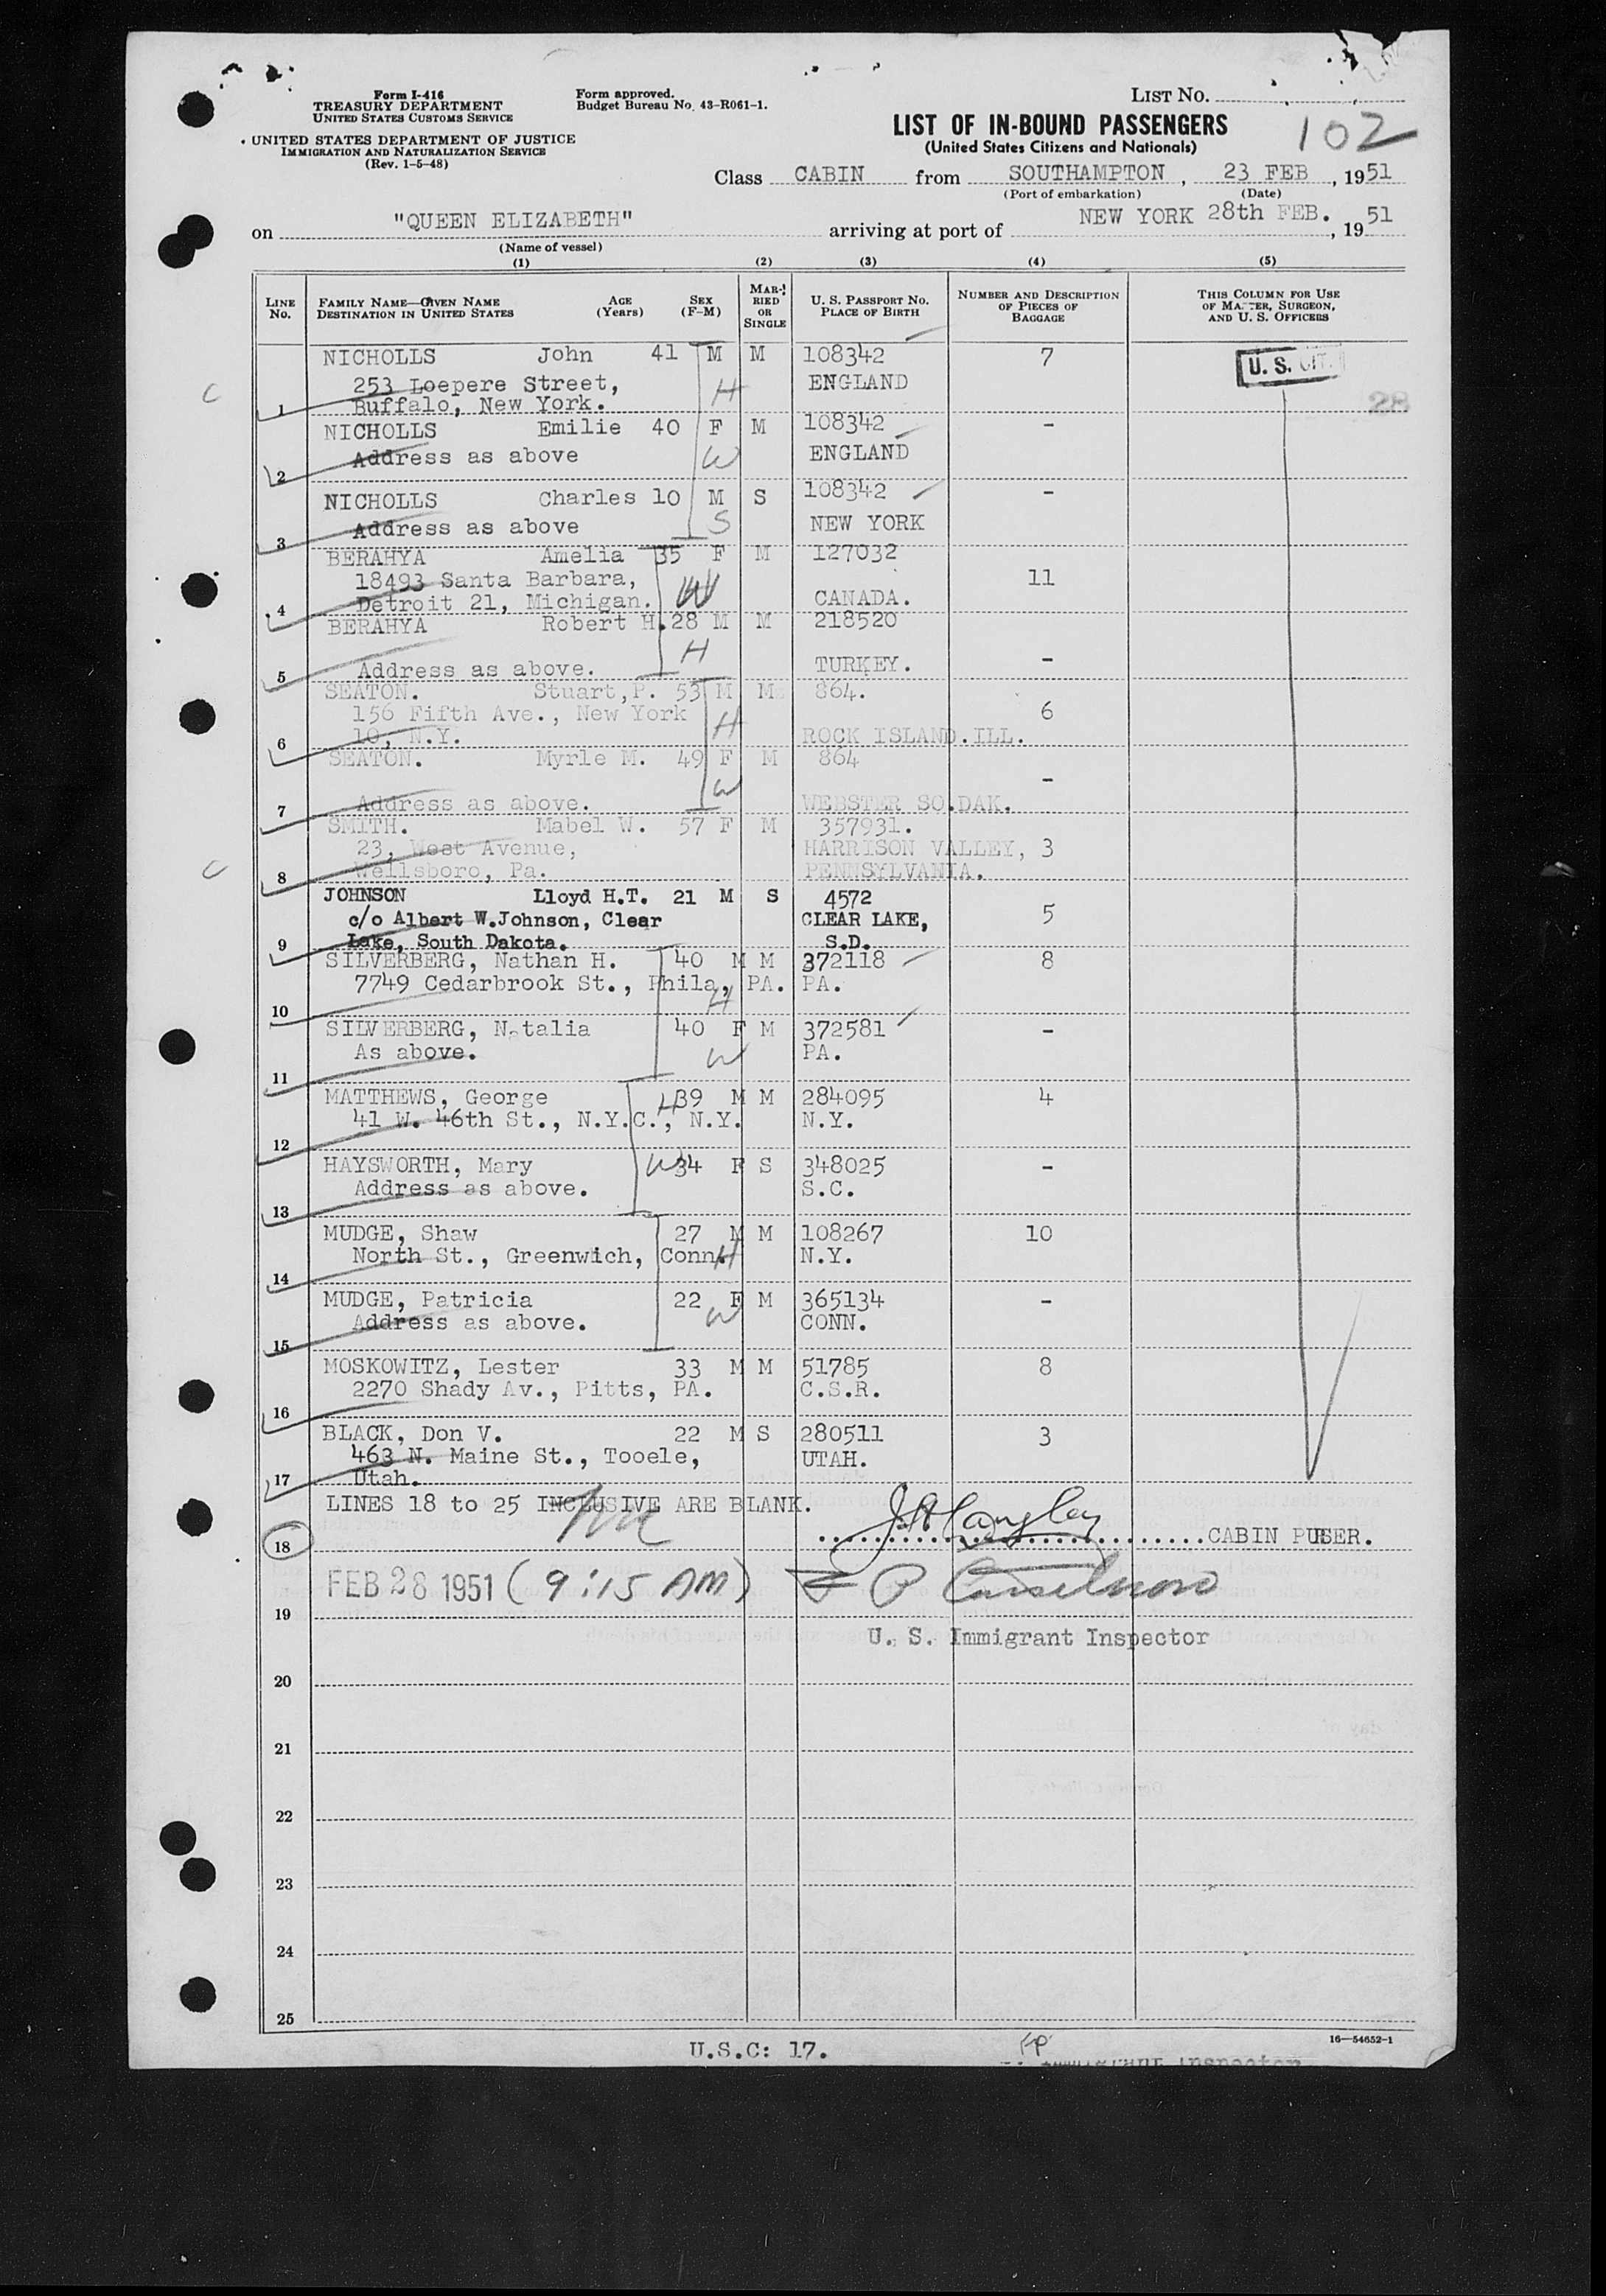 Form I-416
TREASURY DEPARTMENT
UNITED STATES CUSTOMS SERVICE
UNITED STATES DEPARTMENT OF JUSTICE
IMMIGRATION AND NATURALIZATION SERVICE
(Rev. 1-5-48)
Form approved.
Budget Bureau No. 43-R061-1.
LIST NO.
102
LIST OF IN-BOUND PASSENGERS
(United States Citizens and Nationals)
Class CABIN from SOUTHAMPTON, 23 FEB, 1951
(Port of embarkation) (Date)
on "QUEEN ELIZABETH" arriving at port of NEW YORK 28th FEB., 1951
(Name of vessel)
(1) (2) (3) (4) (5)
LINE NO.
FAMILY NAME—GIVEN NAME
DESTINATION IN UNITED STATES
AGE (Years)
SEX (F-M)
MARRIED OR SINGLE
U. S. PASSPORT NO.
PLACE OF BIRTH
NUMBER AND DESCRIPTION OF PIECES OF BAGGAGE
THIS COLUMN FOR USE OF MASTER, SURGEON, AND U. S. OFFICERS
NICHOLLS John 41 M M 108342 7 U. S. CIT.
C 253 Loepere Street, H ENGLAND 28
1 Buffalo, New York.
NICHOLLS Emilie 40 F M 108342 -
2 Address as above W ENGLAND
NICHOLLS Charles 10 M S 108342 -
3 Address as above S NEW YORK
BERAHYA Amelia 35 F M 127032
18493 Santa Barbara, W 11
4 Detroit 21, Michigan. CANADA.
BERAHYA Robert H. 28 M M 218520
5 Address as above. H TURKEY. -
SEATON. Stuart, P. 53 M M 864.
156 Fifth Ave., New York H 6
6 10, N.Y. ROCK ISLAND. ILL.
SEATON. Myrle M. 49 F M 864 -
7 Address as above. W WEBSTER SO.DAK.
SMITH. Mabel W. 57 F M 357931.
C 23, West Avenue, HARRISON VALLEY, 3
8 Wellsboro, Pa. PENNSYLVANIA.
JOHNSON Lloyd H.T. 21 M S 4572
c/o Albert W.Johnson, Clear CLEAR LAKE, 5
9 Lake, South Dakota. S.D.
SILVERBERG, Nathan H. 40 M M 372118 8
7749 Cedarbrook St., Phila, PA. PA.
10 H
SILVERBERG, Natalia 40 F M 372581 -
As above. W PA.
11
MATTHEWS, George H 39 M M 284095 4
41 W. 46th St., N.Y.C., N.Y. N.Y.
12
HAYSWORTH, Mary W 34 F S 348025 -
Address as above. S.C.
13
MUDGE, Shaw 27 M M 108267 10
North St., Greenwich, Conn. H N.Y.
14
MUDGE, Patricia 22 F M 365134 -
Address as above. W CONN.
15
MOSKOWITZ, Lester 33 M M 51785 8
2270 Shady Av., Pitts, PA. C.S.R.
16
BLACK, Don V. 22 M S 280511 3
463 N. Maine St., Tooele, UTAH.
17 Utah.
LINES 18 to 25 INCLUSIVE ARE BLANK.
18 CABIN PURSER.
FEB 28 1951 (9:15 AM)
19
U. S. Immigrant Inspector
20
21
22
23
24
25
16—54652-1
U.S.C: 17.